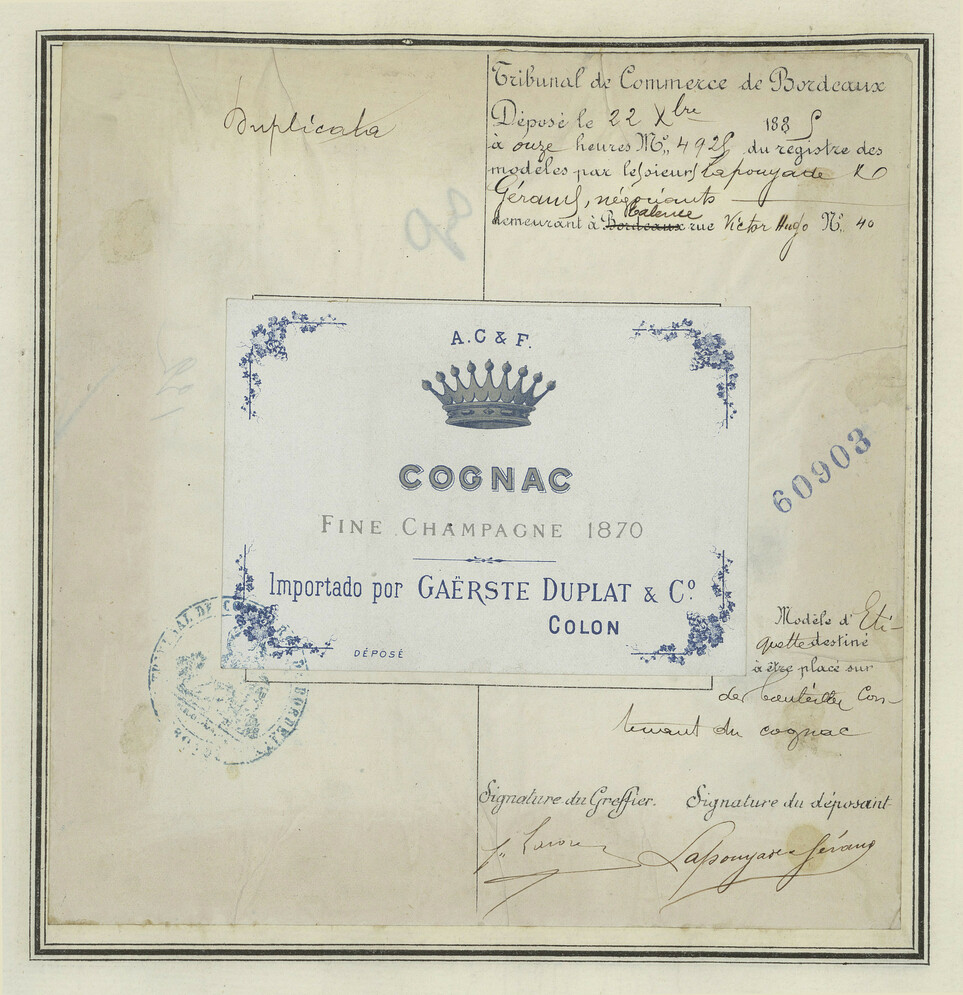 Duplicata
Tribunal de Commerce de Bordeaux
Déposé le 22 Xbre 1885
à onze heures No. 4925 du registre des
modèles par le sieur Lapouyade &
Géraud, négociants
demeurant à Bordeaux Talence rue Victor Hugo No. 40
A. C & F.
COGNAC
FINE CHAMPAGNE 1870
Importado por GAËRSTE DUPLAT & Co.
COLON
DÉPOSÉ
60903
Modèle d'Eti-
quette destiné
à être placé sur
des bouteilles con-
tenant du cognac
TRIBUNAL DE COMMERCE DE BORDEAUX
Signature du Greffier. Signature du déposant
Lapouyade Géraud